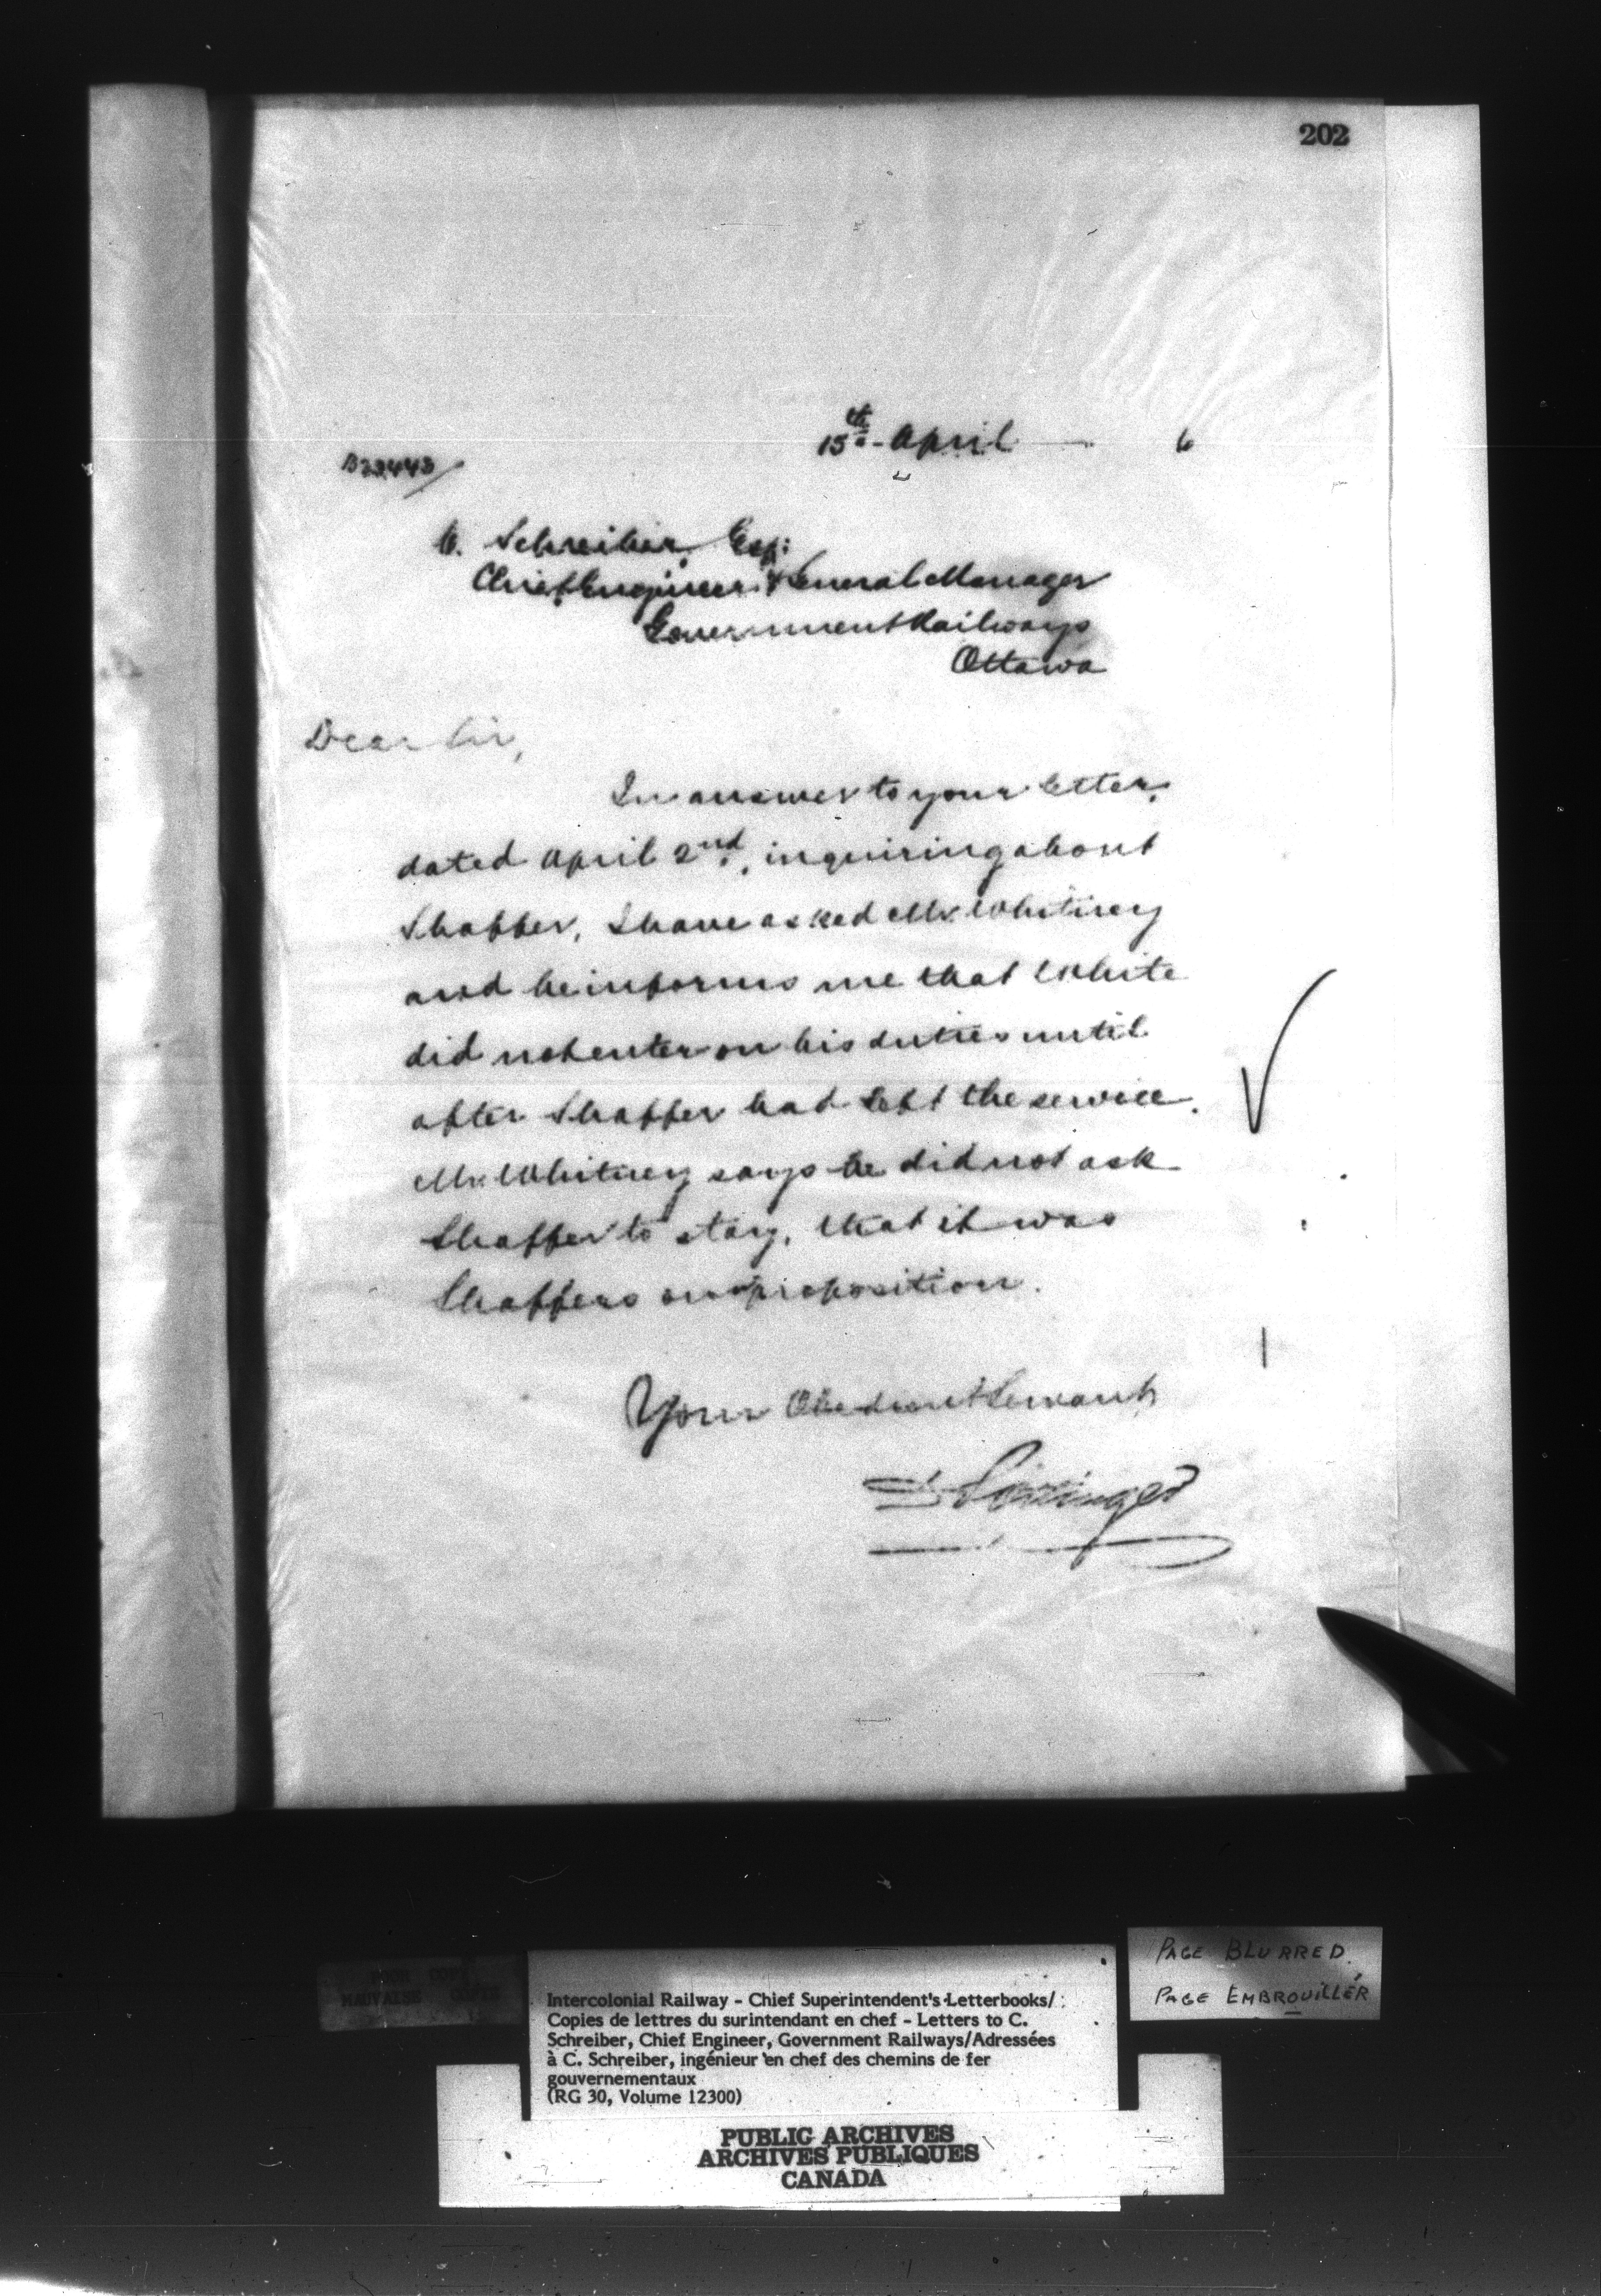 202
15th April 6
B22443
C. Schreiber, Esq:
Chief Engineer & General Manager
Government Railways
Ottawa
Dear Sir,
In answer to your letter,
dated April 2nd, inquiring about
Shaffer, I have asked Mr. Whitney
and he informs me that White
did not enter on his duties until
after Shaffer had left the service.
Mr. Whitney says he did not ask
Shaffer to stay, that it was
Shaffers own proposition.
Your Obedient Servant
D Pottinger
PAGE BLURRED.
PAGE EMBROUILLÉR
MAUVAISE COPIE
Intercolonial Railway - Chief Superintendent's Letterbooks/
Copies de lettres du surintendant en chef - Letters to C.
Schreiber, Chief Engineer, Government Railways/Adressées
à C. Schreiber, ingénieur en chef des chemins de fer
gouvernementaux
(RG 30, Volume 12300)
PUBLIC ARCHIVES
ARCHIVES PUBLIQUES
CANADA